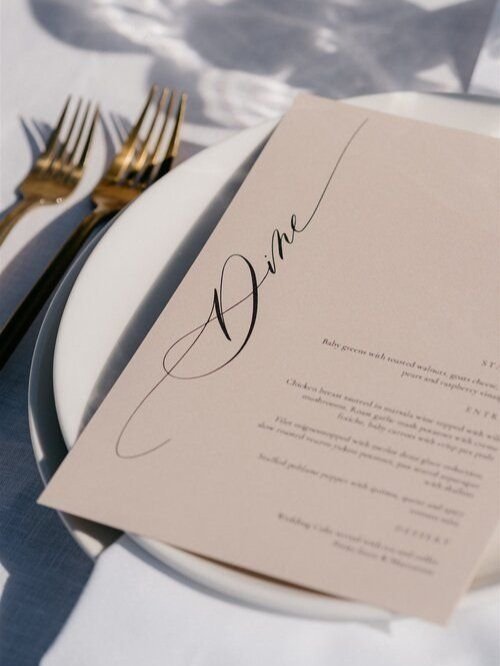 Dine
STA
Baby greens with toasted walnuts, goats cheese
pears and raspberry vina
ENTR
Chicken breast sauteed in marsala wine topped with
mushrooms. Roast garlic mash potatoes with creme
fraiche, baby carrots with crisp pea pods
Filet with merlot demi glaze reduction,
slow roasted potatoes, pan seared asparagus
with shallots
Stuffed poblano pepper with quinoa, queso and spicy
tomato
DESSERT
Wedding Cake served with